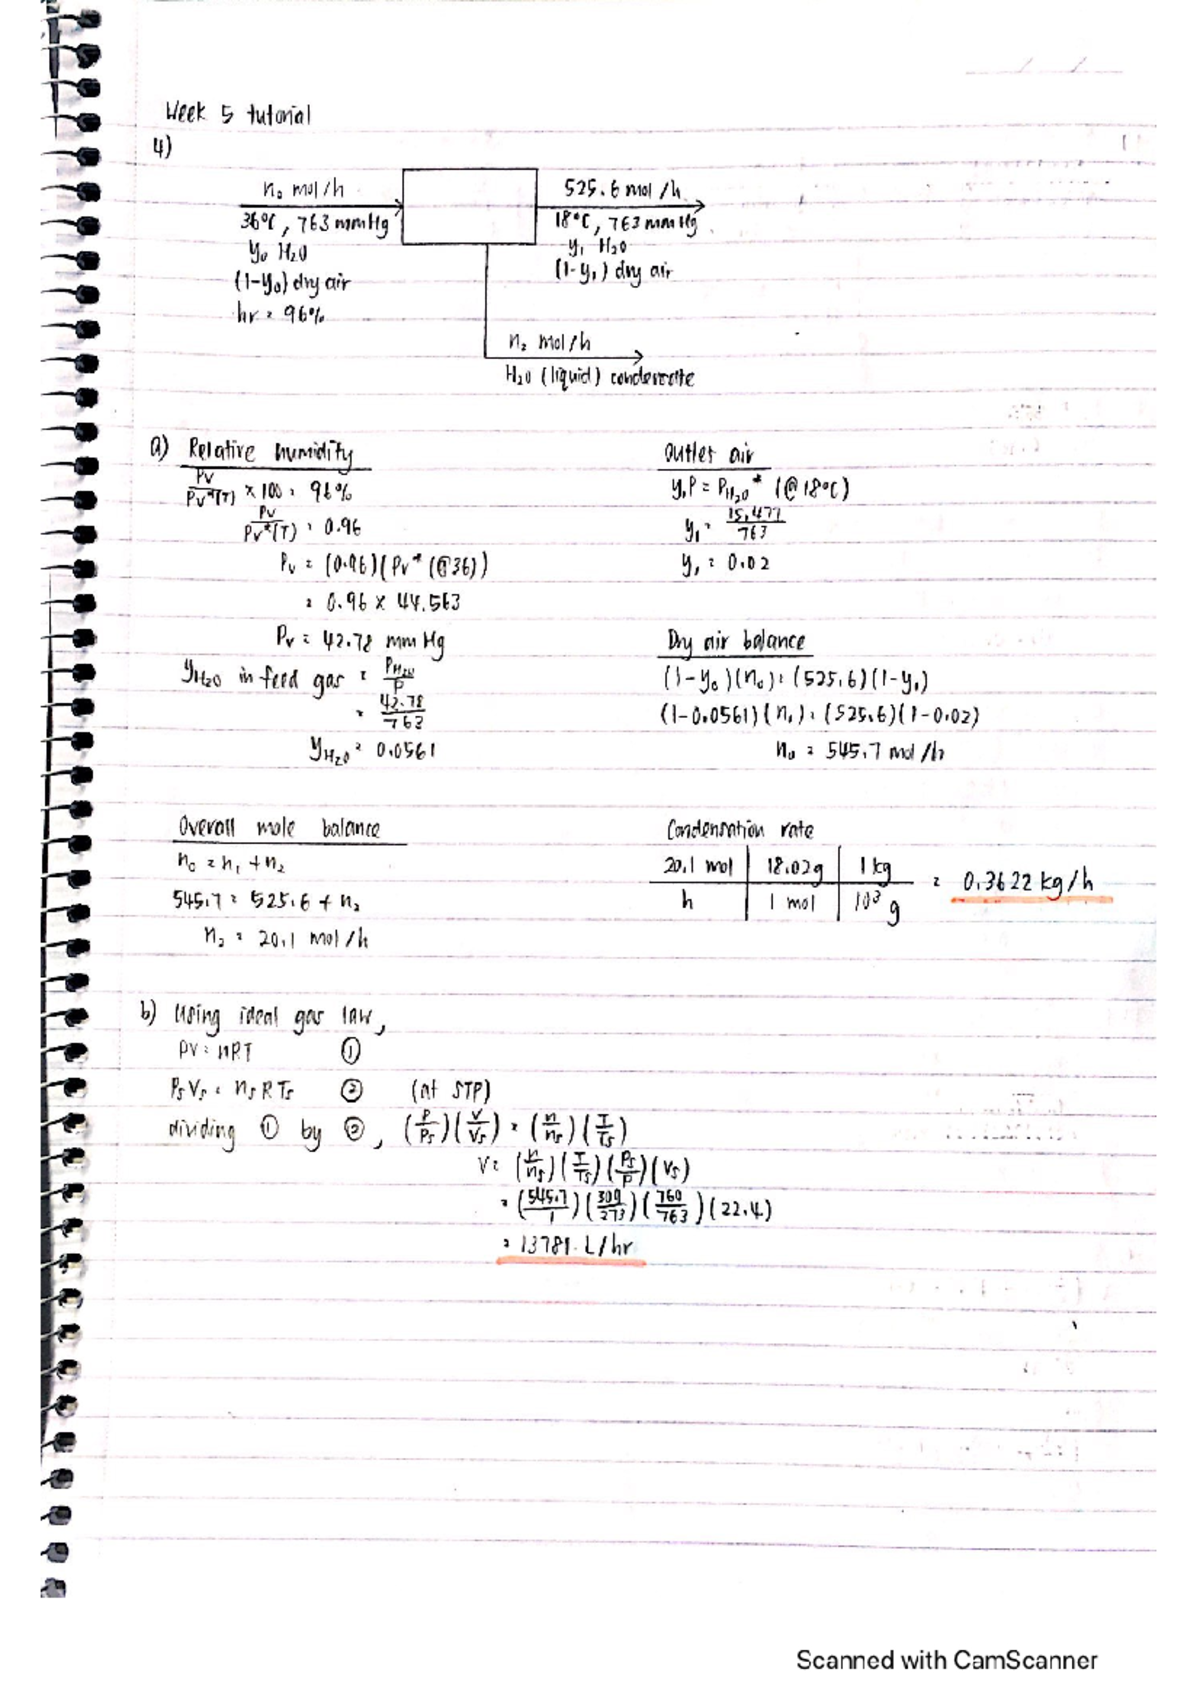 Week 5 tutorial
4)
n₀ mol/h
36°C, 763 mmHg
y₀ H₂O
(1-y₀) dry air
hr = 96%
525.6 mol/h
18°C, 763 mmHg
y₁ H₂O
(1-y₁) dry air
n₂ mol/h
H₂O (liquid) condensate
a) Relative humidity
Pv/Pv*(T) × 100 = 96%
Pv/Pv*(T) = 0.96
Pv = (0.96)(Pv* (@36))
= 0.96 × 44.563
Pv = 42.78 mm Hg
yH₂O in feed gas = PH₂O/P
= 42.78/763
yH₂O = 0.0561
Outlet air
y₁P = PH₂O* (@18°C)
y₁ = 15.477/763
y₁ = 0.02
Dry air balance
(1-y₀)(n₀) = (525.6)(1-y₁)
(1-0.0561)(n₀) = (525.6)(1-0.02)
n₀ = 545.7 mol/h
Overall mole balance
n₀ = n₁ + n₂
545.7 = 525.6 + n₂
n₂ = 20.1 mol/h
Condensation rate
20.1 mol | 18.02g | 1 kg = 0.3622 kg/h
h | 1 mol | 10³ g
b) Using ideal gas law,
PV = nRT ①
PsVs = nsRTs ② (at STP)
dividing ① by ②, (P/Ps)(V/Vs) = (n/ns)(T/Ts)
V = (n/ns)(T/Ts)(Ps/P)(Vs)
= (545.7/1)(309/273)(760/763)(22.4)
= 13781 L/hr
Scanned with CamScanner